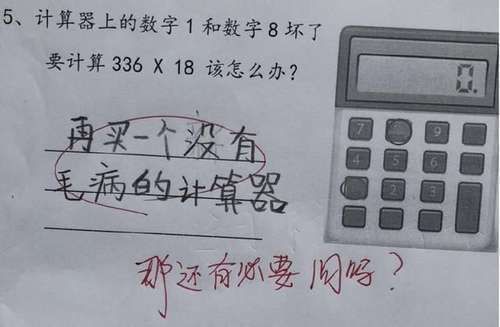 5、计算器上的数字1和数字8坏了
要计算336 X 18 该怎么办?
0.
7 9
4 5 6
2 3
再买一个没有
毛病的计算器
那还有必要问吗?